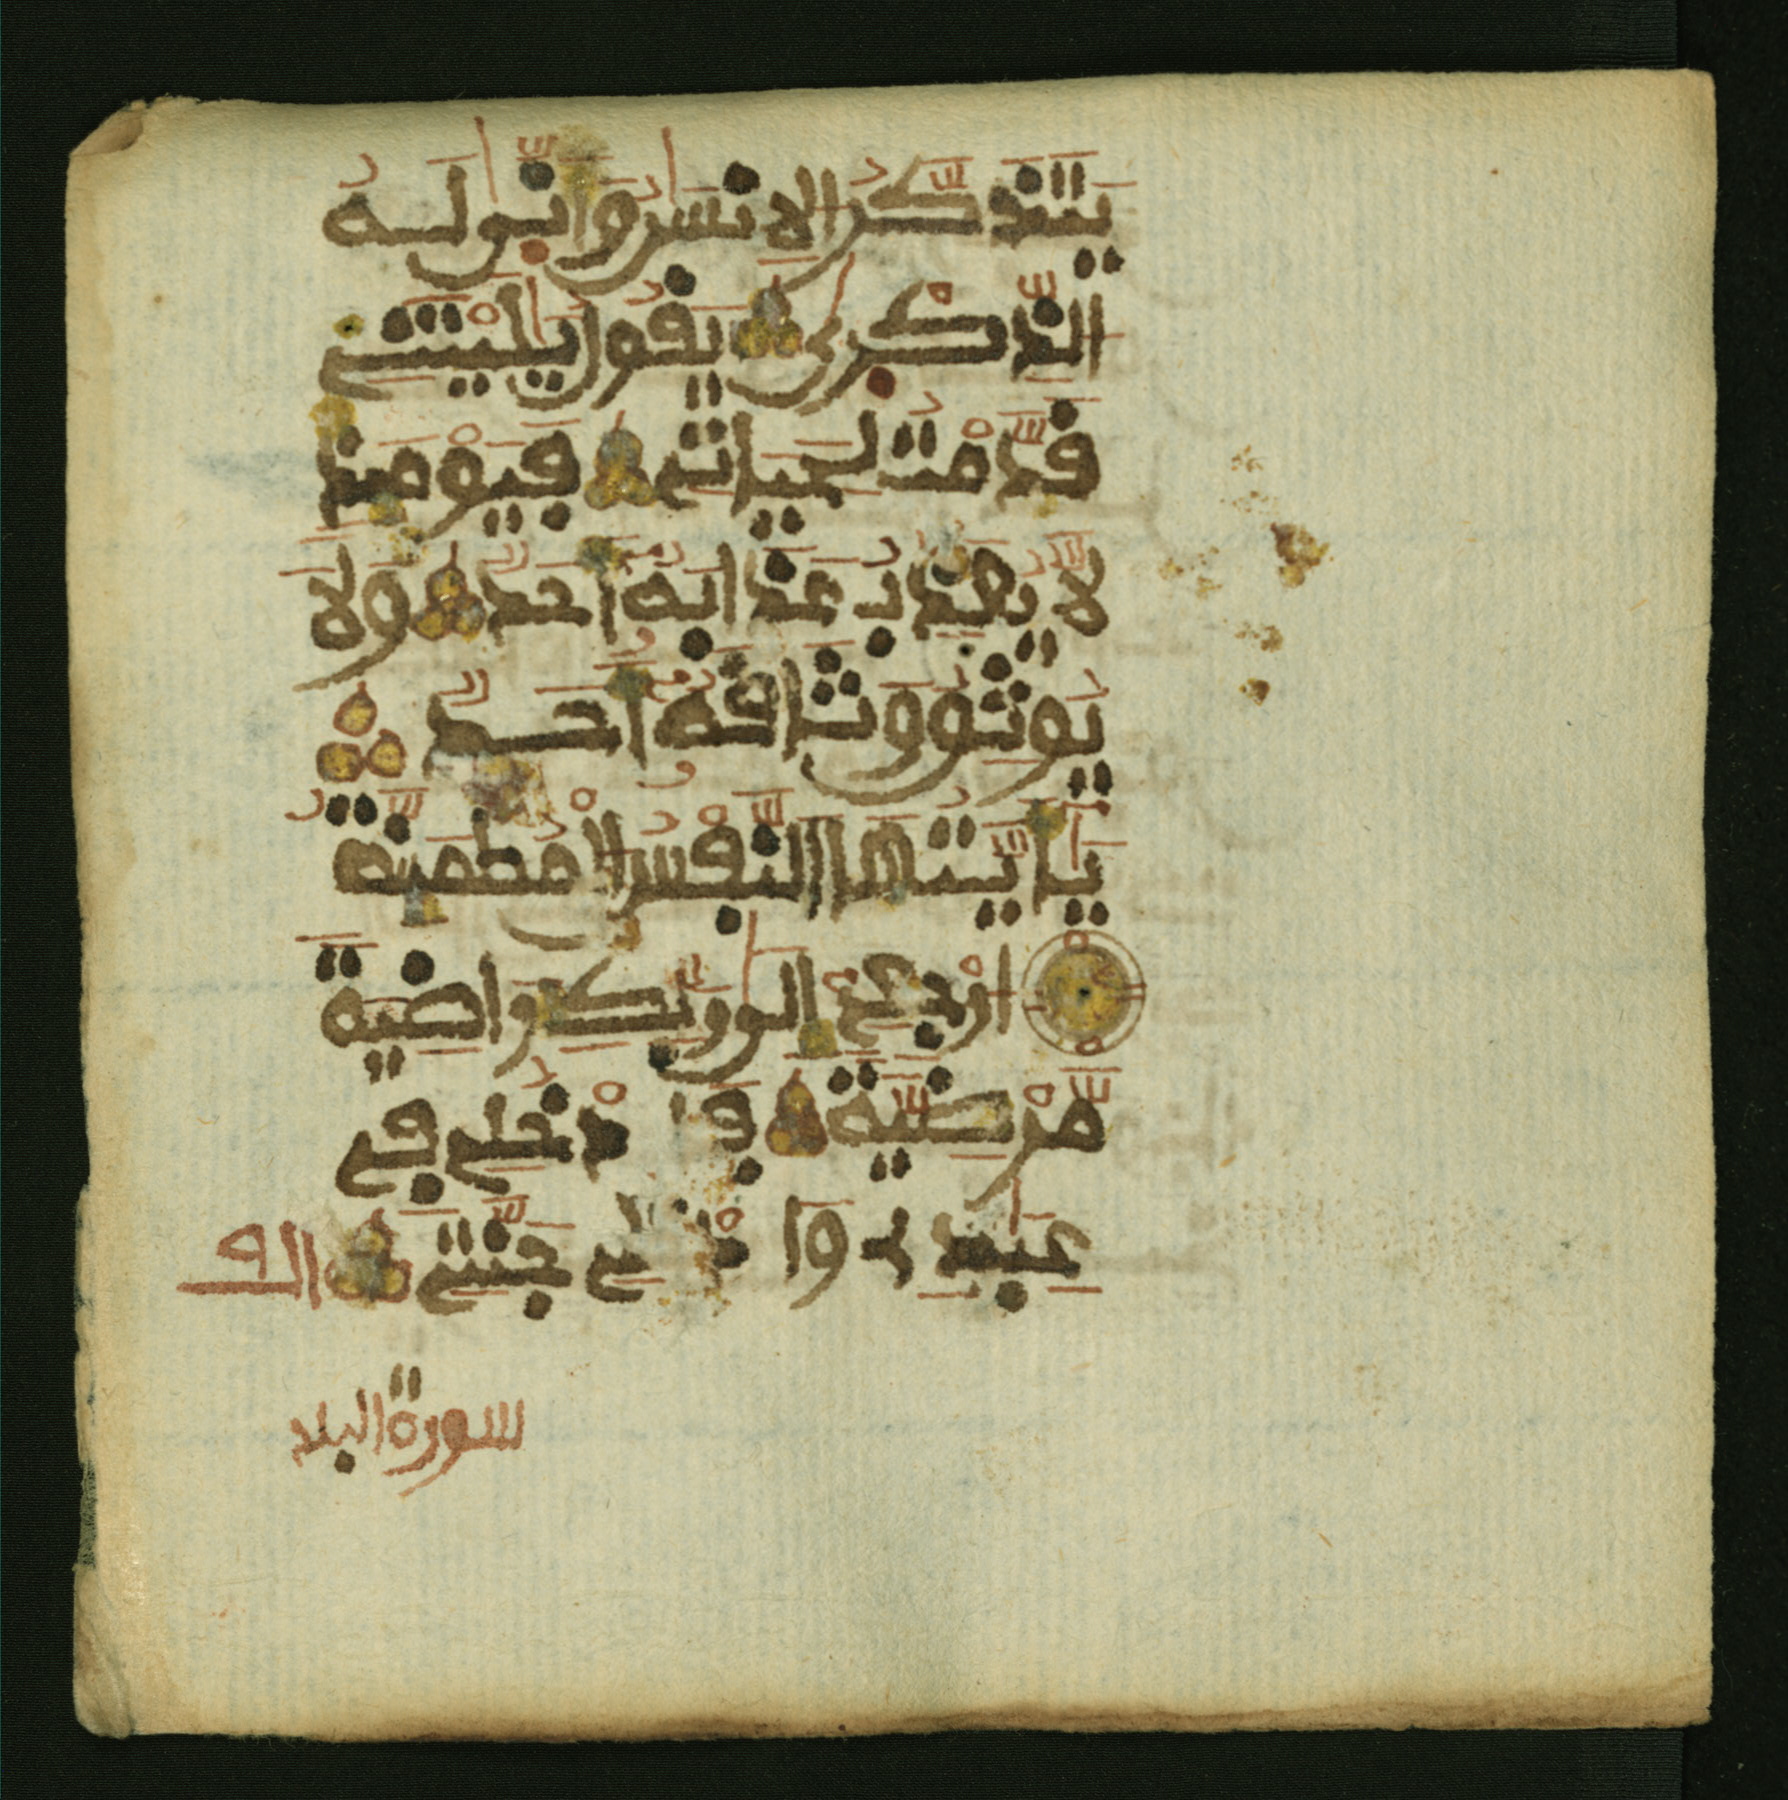 يَتَذَكَّرُ الِانسَٰنُ وَأَنّٰى لَهُ
الذِّكْرٰى يَقُولُ يَٰلَيْتَنِے
قَدَّمْتُ لِحَيَاتِے فَيَوْمَئِذٖ
لَّا يُعَذِّبُ عَذَابَهُۥٓ أَحَدٞ وَلَا
يُوثِقُ وَثَاقَهُۥٓ أَحَدٞ
يَٰٓأَيَّتُهَا النَّفْسُ الْمُطْمَئِنَّةُ
ارْجِعِےٓ إِلَىٰ رَبِّكِ رَاضِيَةٗ
مَّرْضِيَّةٗ فَادْخُلِے فِے
عِبَٰدِے وَادْخُلِے جَنَّتِے
سورة البلد